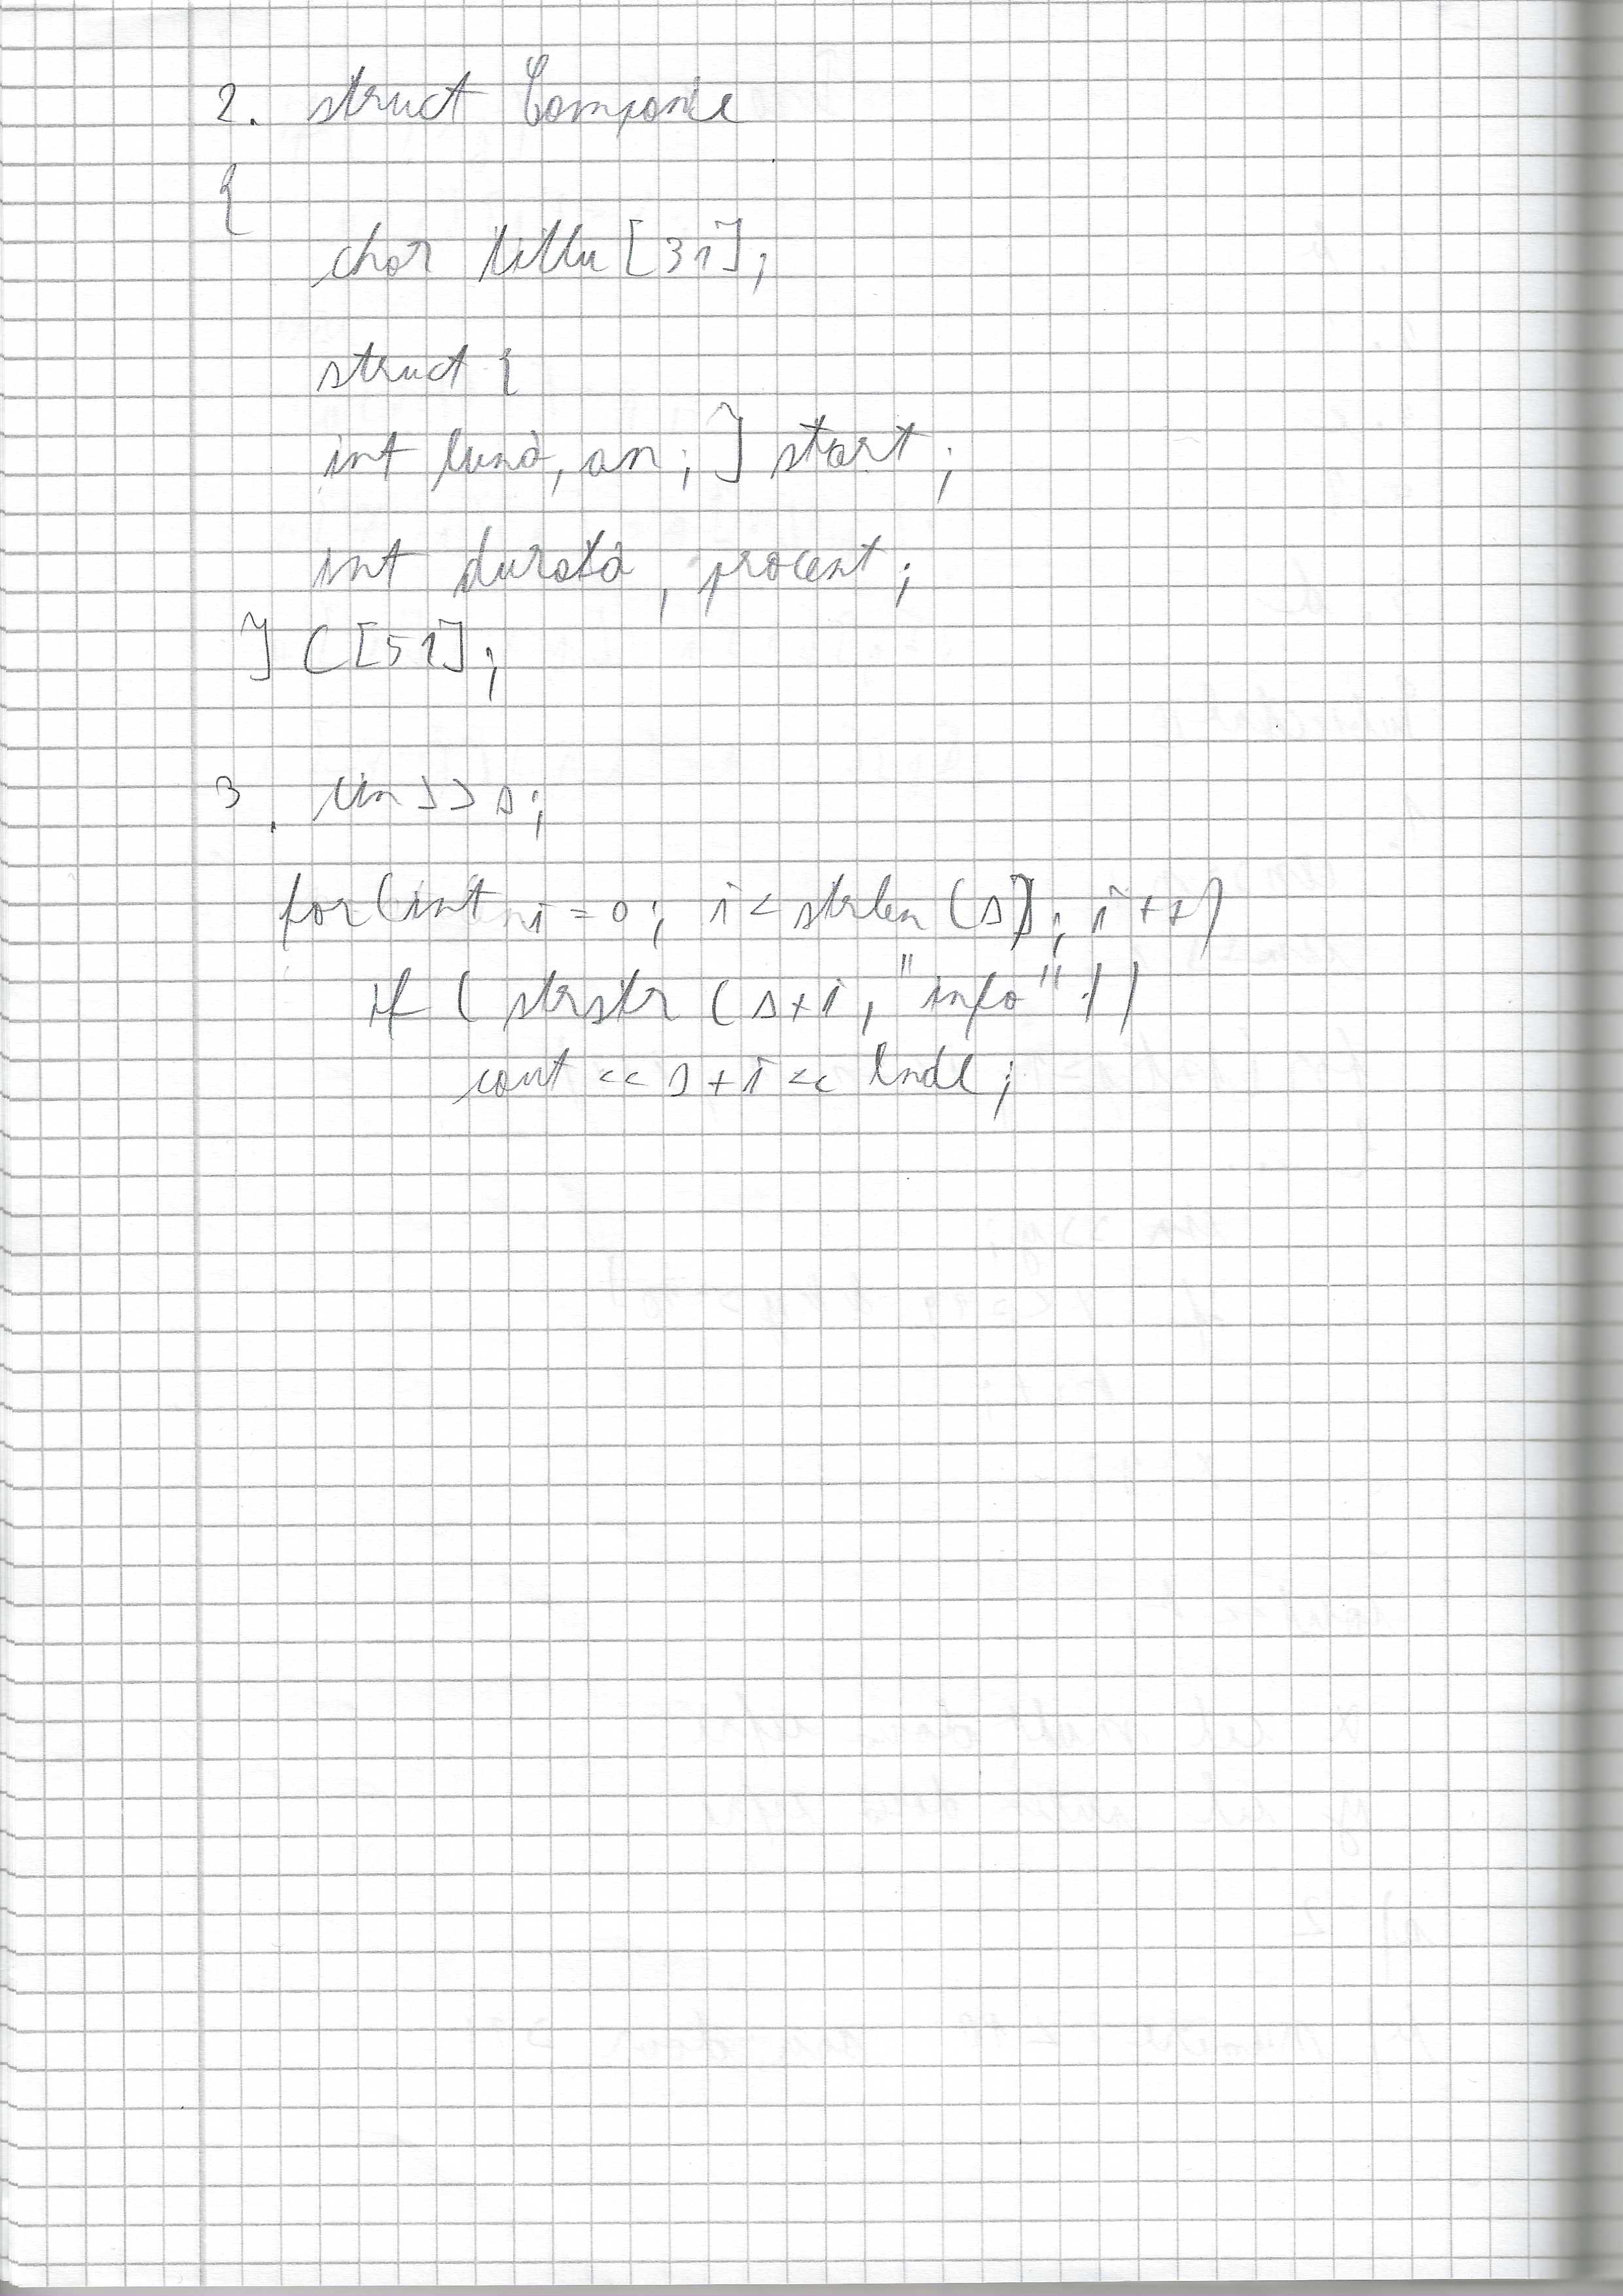 2. struct Companie
{
char titlu [31];
struct {
int luna, an; } start;
int durata, procent;
} C[51];
3. cin >> s;
for (int i = 0; i < strlen (s); i++)
if ( strstr (s+i, "info" ))
cout << s+i << endl;